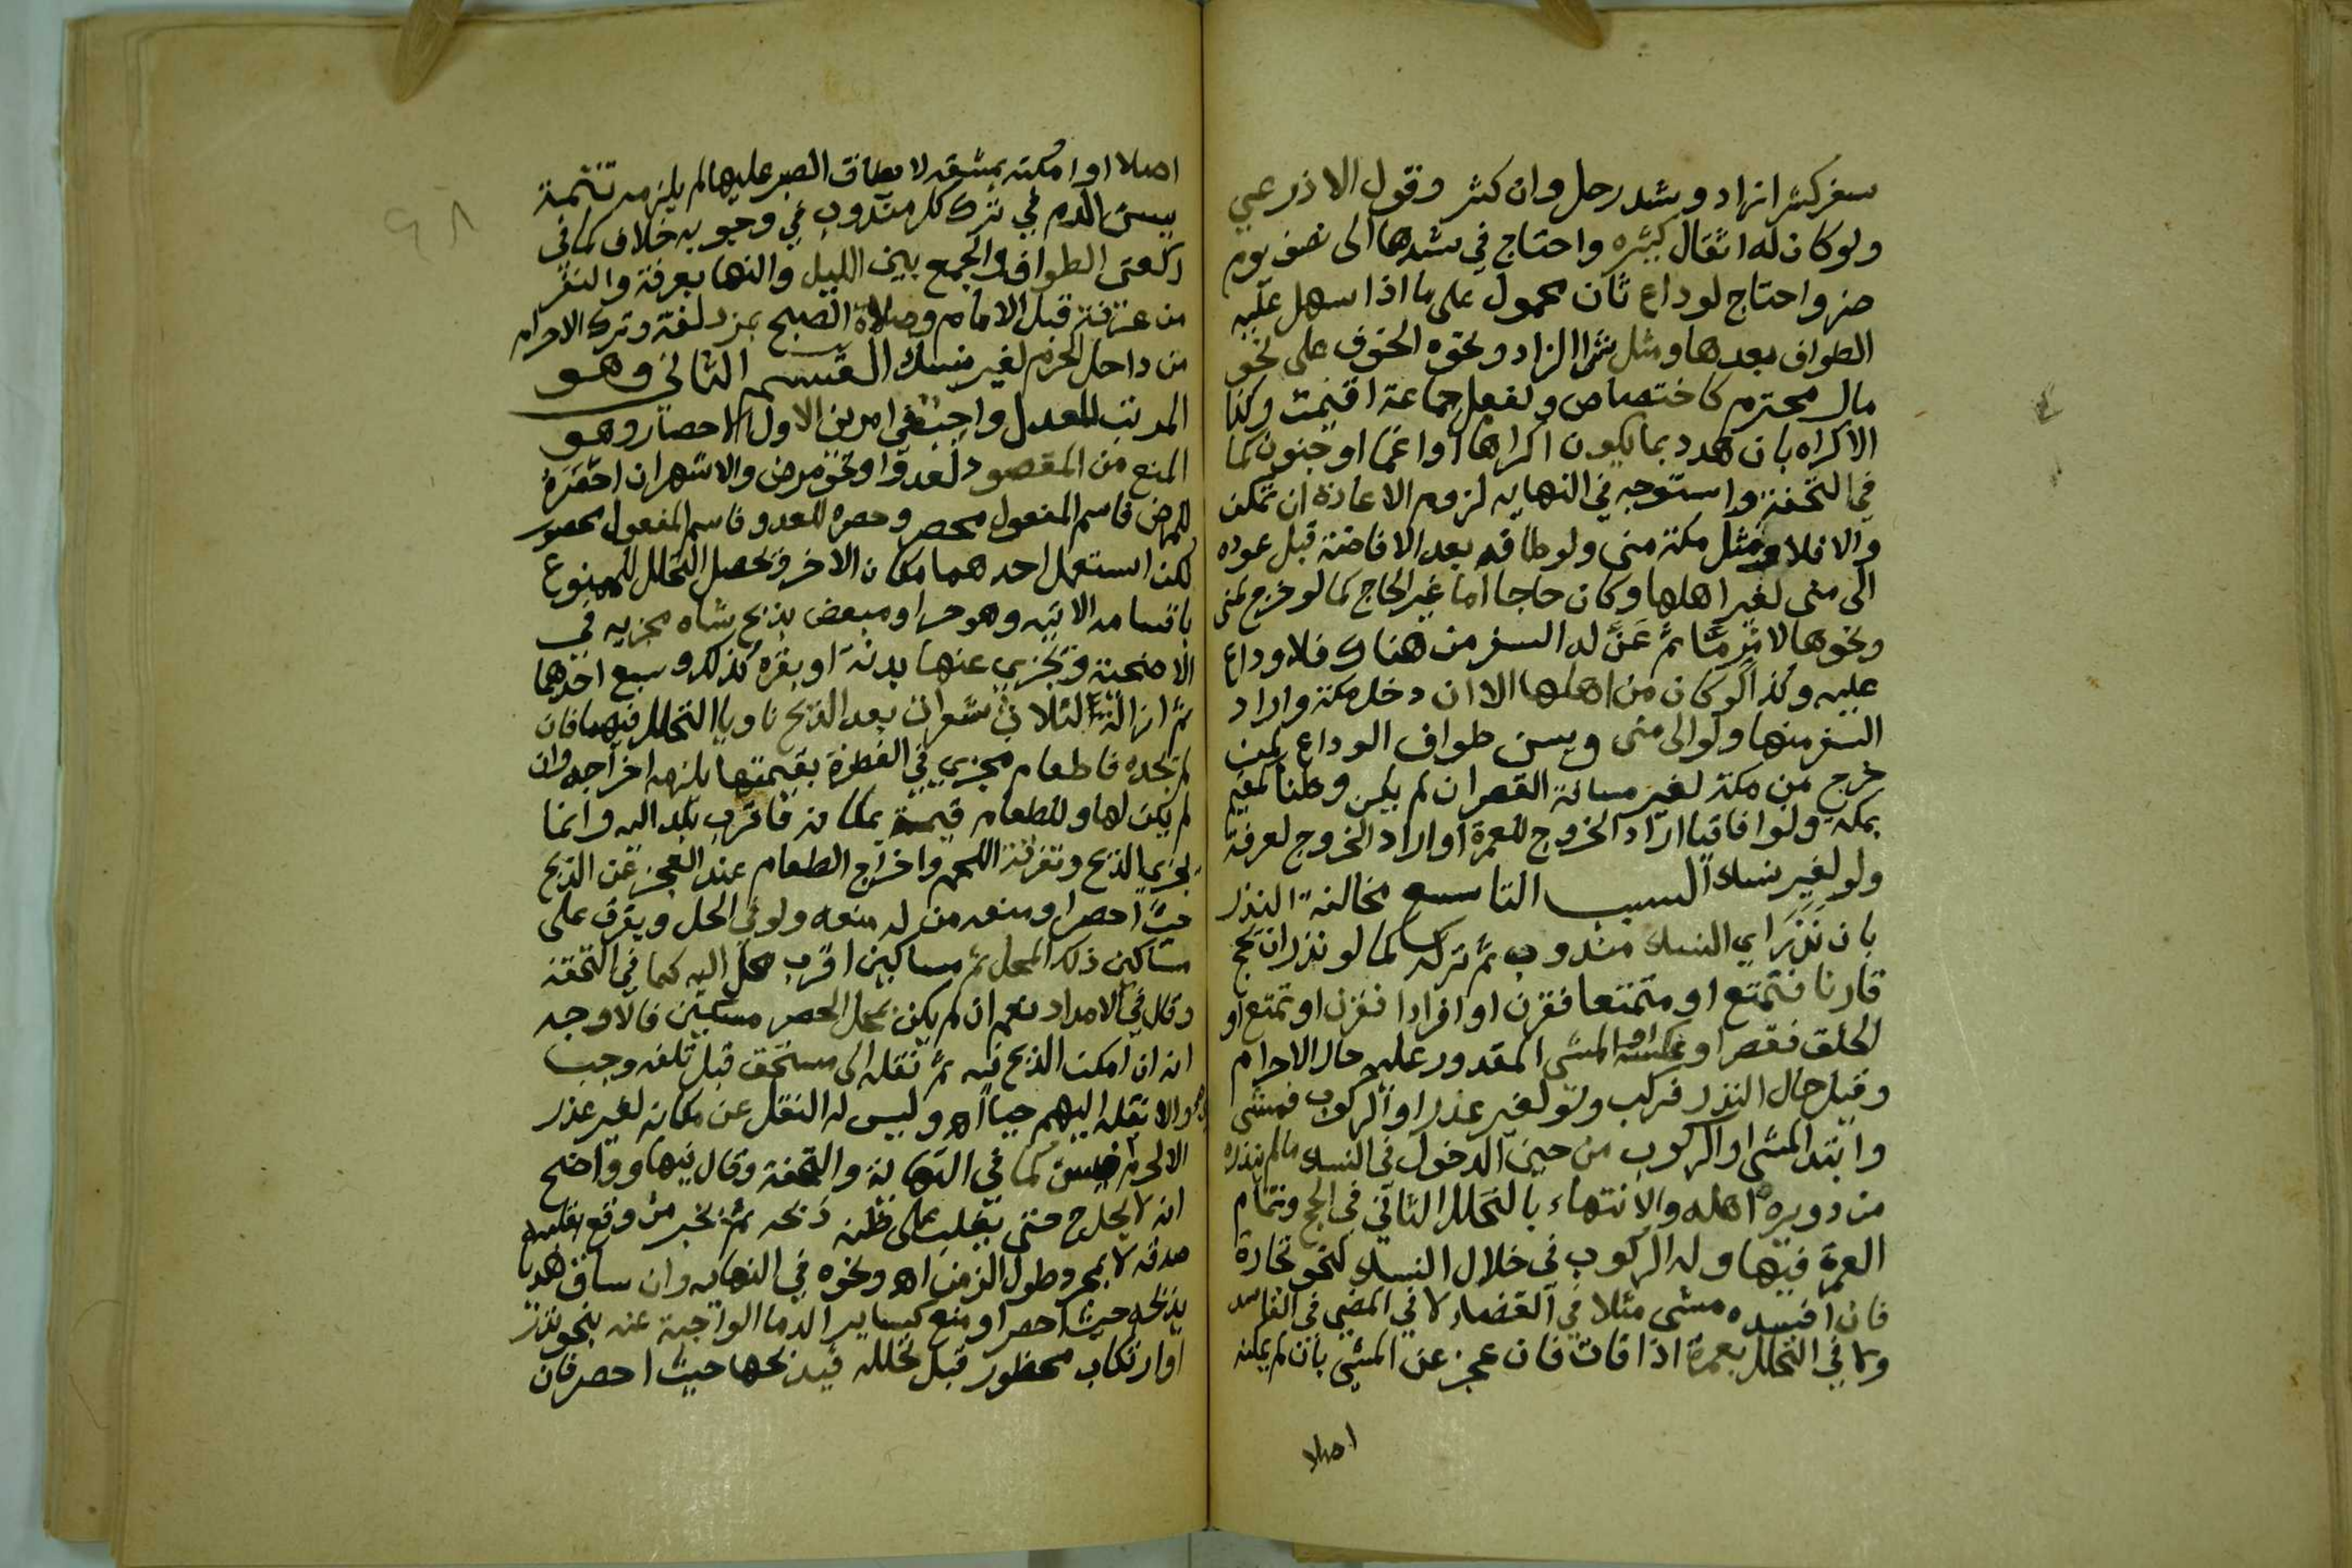 سفر كشرا زاد وشد رحل وان كثر وقول الاذرعي
ولو كان له اثقال كثيره واحتاج في شدها الى نصف يوم
ضر واحتاج لوداع ثان محمول على ما اذا سهل عليه
الطواف بعدها ومثل شرا الزاد ونحوه الخوف على نحو
مال محترم كاختصاص وفعل جماعة اقيمت وكذا
الاكراه بان هدد بما يكون اكراها او اغما او جنون كما
في التحفة واستوجه في النهايه لزوم الاعادة ان تمكن
والا فلا ومثل مكة منى ولو طافه بعد الافاضة قبل عوده
الى منى لغير اهلها وكان حاجا اما غير الحاج كما لو خرج لمنى
ونحوها لامر ما ثم عَنَّ له السفر من هناك فلا وداع
عليه وكذا لو كان من اهلها الا ان دخل مكة واراد
السفر منها ولو الى منى ويسن طواف الوداع لمن
خرج من مكة لغير مسافة القصر ان لم يكن وطنا لمقيم
بمكة ولو افاقيا اراد الخروج للعمرة او اراد الخروج لعرفة
ولو لغير نسك السبب التاسع مخالفة النذر
بان نَذَرَ اي النسك مندوب ثم تركه كما لو نذر ان يحج
قارنا فتمتع او متمتعا فقرن او افرادا فقرن او تمتع او
الحلق فقصر او عكسه او المشى المقدور عليه حال الاحرام
وقيل حال النذر فركب ولو لغير عذر او الركوب فمشى
وابتدا المشى او الركوب من حين الدخول في النسك ما لم ينذره
من دويرة اهله والانتهاء بالتحلل الثاني في الحج وتمام
العمرة فيها وله الركوب في خلال النسك لنحو تجارة
فان افسده مشى مثلا في القضاء لا في المضي في الفاسد
ولا في التحلل بعمرة اذا فات فان عجز عن المشي بان لم يمكنه
اصلا
٩٨
اصلا او امكنه بمشقه لا يطاق الصبر عليها لم يلزمه تتمة
يسن الدم في ترك كل مندوب في وجوبه خلاف كما في
ركعتى الطواف والجمع بين الليل والنها بعرفة والنفر
من عرفة قبل الامام وصلاة الصبح بمزدلفة وترك الاحرام
من داخل الحرم لغير نسك القسم الثانى وهو
المرتب المعدل واجب في امرين الاول الاحصار وهو
المنع من المقصود لعدو او نحو مرض والاشهر ان احصره
للمرض فاسم المفعول محصر وحصره للعدو فاسم المفعول محصور
لكن استعمل احدهما مكان الاخر فيحصل التحلل للممنوع
باقسامه الاتيه وهو حر او مبعض بذبح شاه مجزيه في
الاضحية وتجزي عنها بدنة او بقره كذلك و سبع احدهما
ثم ازالة ثلاث شعرات بعد الذبح ناويا التحلل فيهما فان
لم يجده فاطعام مجزي في الفطرة بقيمتها يلزمه اخراجه وان
لم يكن لها و للطعام قيمة بمكانه فاقرب بلد اليه وانما
يجزى الذبح وتفرقة اللحم واخراج الطعام عند العجز عن الذبح
حيث احصر او منعه من له منعه ولو في الحل ويفرق على
مساكين ذلك المحل ثم مساكين اقرب محل اليه كما في التحفة
وقال في الامداد نعم ان لم يكن بمحل الحصر مستحق فالاوجه
انه ان امكن الذبح فيه ثم نقله الى مستحق قبل تلفه وجب
والا نقله اليهم حيا اهـ وليس له النقل عن مكانه لغير عذر
الا لحرم فيسن كما في النهاية والتحفة وقال فيها وواضح
انه لا يحل ح حتى يغلب على ظنه ذبحه ثم بخبر من وقع بقلبه
صدقه لا بمجرد طول الزمن اهـ ونحوه في النهايه وان ساق هديا
يذبحه حيث احصر او منع كساير الدما الواجبة عنه بنحو نذر
او ارتكاب محظور قبل تحلله فيذبحها حيث احصر فان